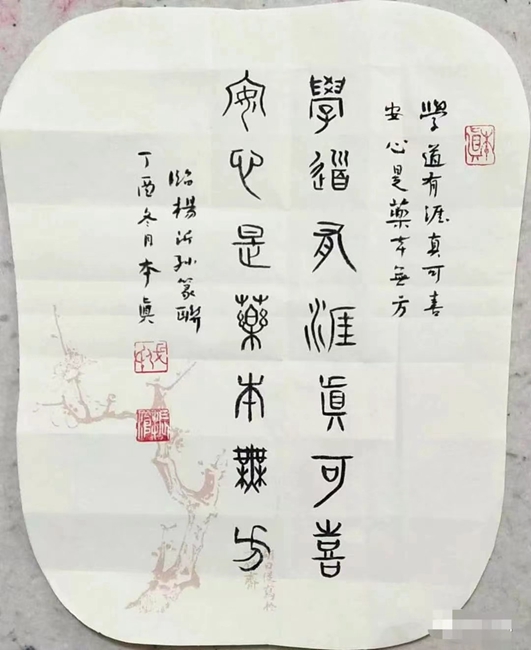 本真
學道有涯真可喜
安心是藥本無方
學道有涯真可喜
安心是藥本無方
临楊沂孙篆聯
丁酉冬月本真